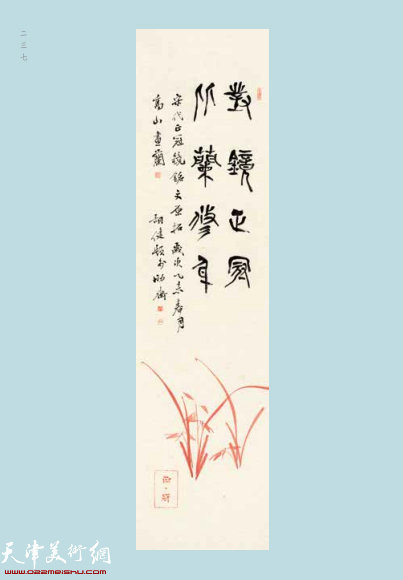 二三七
對鏡正冠
蘭修身
宋代正冠鏡銘文原拓 歲次乙未春月
高山畫蘭
胡健題於 齋
天津美術網
www.022meishu.com